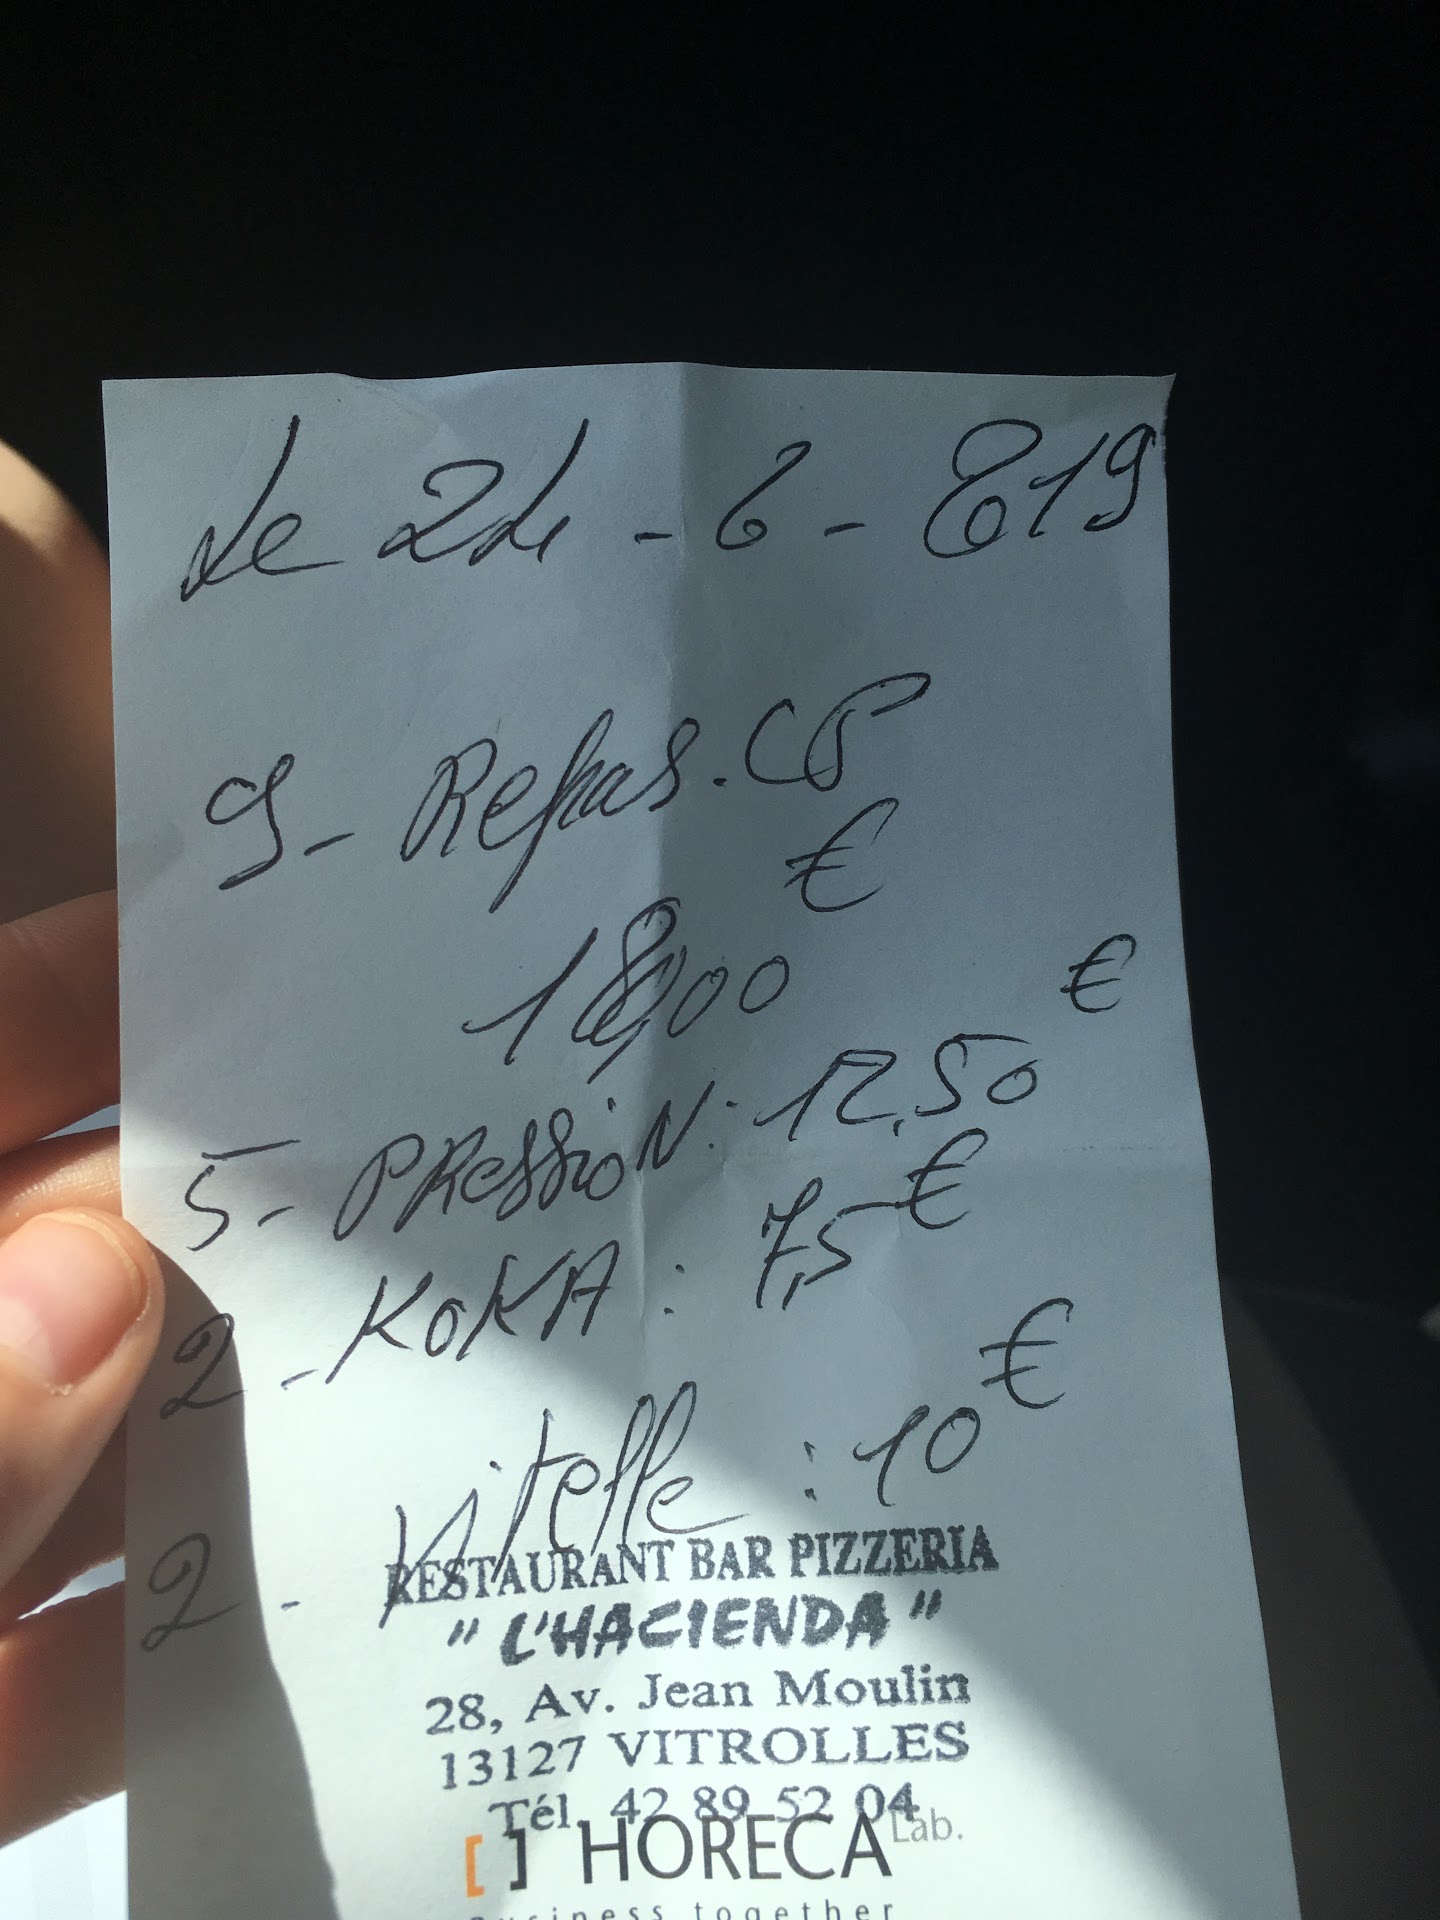 Le 24 - 6 - 2019
9 - Repas. CB
€
18,00
€
5 - PRESSION : 12,50
2 - KOKA : 7,5 €
2 - Vitelle : 10 €
RESTAURANT BAR PIZZERIA
"L'HACIENDA"
28, Av. Jean Moulin
13127 VITROLLES
Tél. 42 89 52 04
[ ] HORECA Lab.
Business together